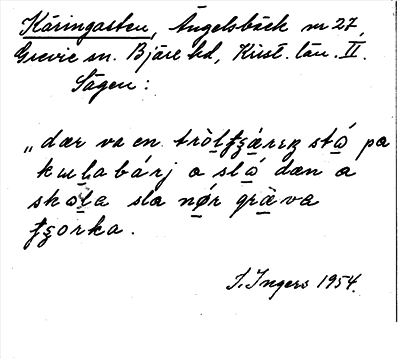 Käringasten, Ängelsbäck nr 27,
Grevie sn. Bjäre hd, Krist. län. II.
Sägen:
„dær va en tròlʈʂäriŋ stǫ́ pa
kulabárj a slǫ́ dæn a
skǫla sla nø̀r gràva
ʈʂorka.
I. Ingers 1954.